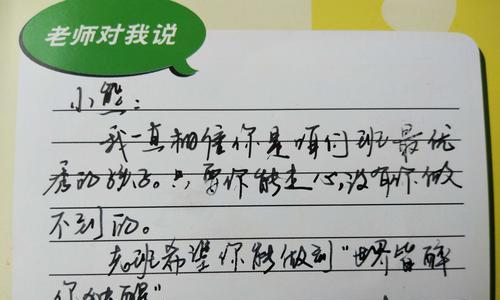 老师对我说
小熊：
我一直相信你是咱们班最优
秀的孩子。只要你能走心，没有你做
不到的。
老班希望你能做到“世界皆醉
你独醒”